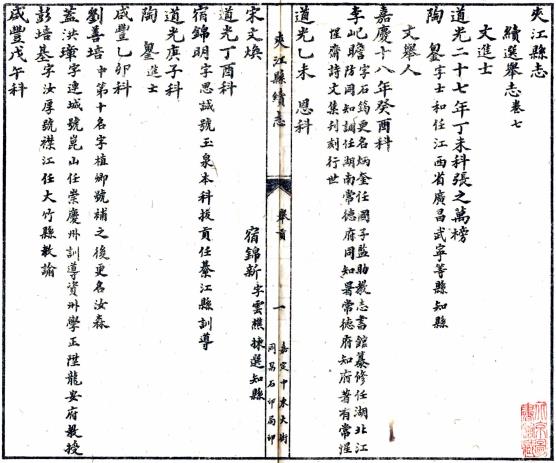 夾江縣志
續選舉志卷七
文進士
道光二十七年丁未科張之萬榜
陶鋆字士和任江西省廣昌武寧等縣知縣
文舉人
嘉慶十八年癸酉科
李屺瞻字石鶴更名炳奎任國子監助教志書館纂修任湖北江
防同知調任湖南常德府同知署常德府知府著有常惺
惺齋詩文集刊刻行世
道光乙未 恩科
夾江縣續志
舉貢
一
嘉定中水大街
同昌石印局印
宋文煥
宿錦新字雲樵揀選知縣
道光丁酉科
宿錦明字思誠號玉泉本科拔貢任綦江縣訓導
道光庚子科
陶鋆進士
咸豐乙卯科
劉善培中第十名字植卿號補之後更名汝森
藍洪璋字連城號崑山任崇慶州訓導資州學正陞龍安府教授
彭培基字汝厚號襟江任大竹縣教諭
咸豐戊午科